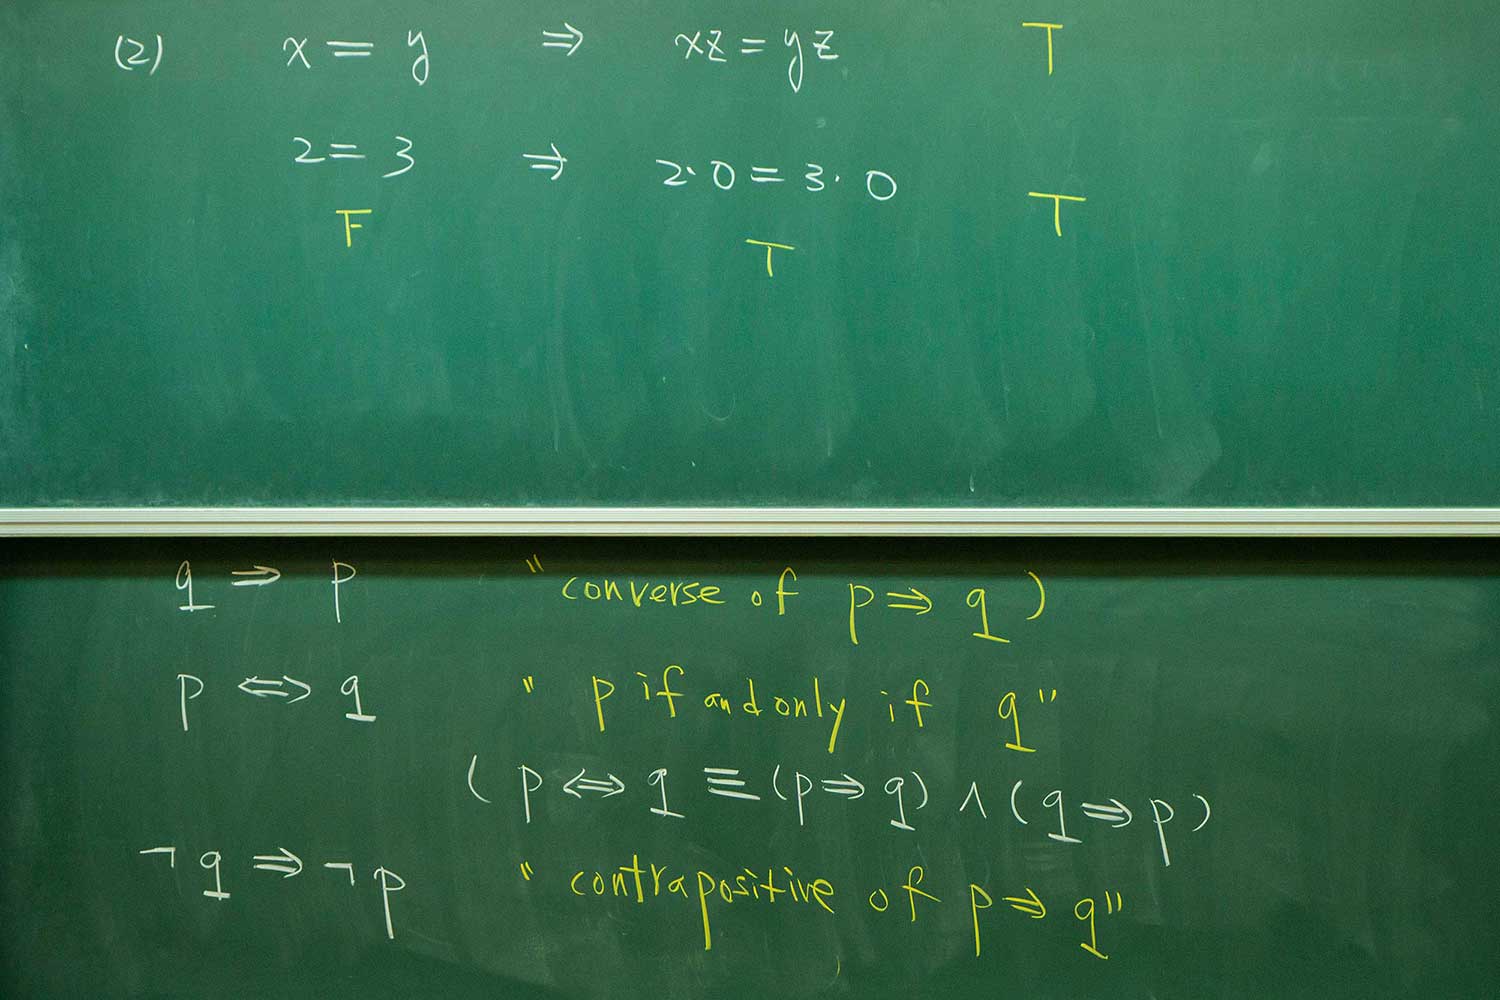 (2) x = y ⇒ xz = yz T
2 = 3 ⇒ 2·0 = 3·0 T
F T
q ⇒ p "converse of p ⇒ q)
p ⇔ q "p if and only if q"
(p ⇔ q ≡ (p ⇒ q) ∧ (q ⇒ p)
¬q ⇒ ¬p "contrapositive of p ⇒ q"